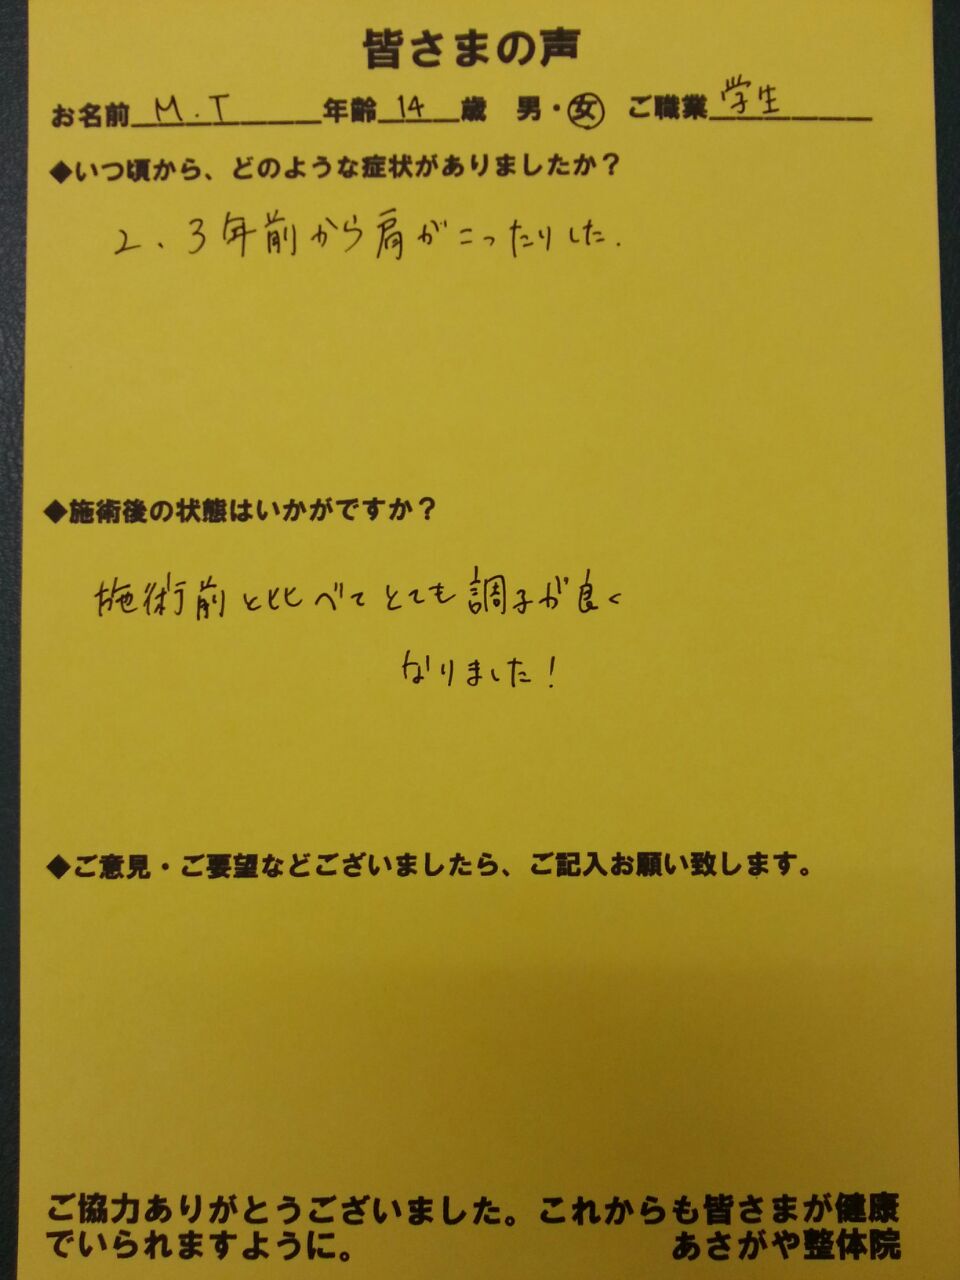 皆さまの声
お名前 M.T 年齢 14 歳 男・女 ご職業 学生
◆いつ頃から、どのような症状がありましたか？
2、3年前から肩がこったりした.
◆施術後の状態はいかがですか？
施術前と比べてとても調子が良く
なりました!
◆ご意見・ご要望などございましたら、ご記入お願い致します。
ご協力ありがとうございました。これからも皆さまが健康
でいられますように。 あさがや整体院